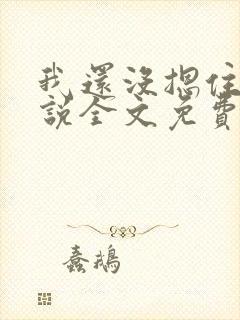 我還沒摁住
說全文免費
蠢鵝